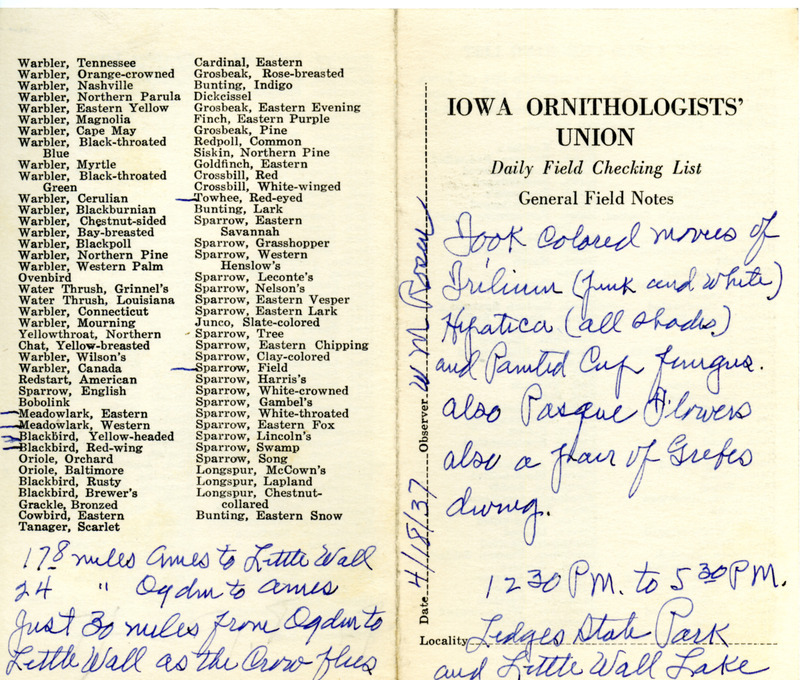 Warbler, Tennessee
Warbler, Orange-crowned
Warbler, Nashville
Warbler, Northern Parula
Warbler, Eastern Yellow
Warbler, Magnolia
Warbler, Cape May
Warbler, Black-throated
Blue
Warbler, Myrtle
Warbler, Black-throated
Green
Warbler, Cerulian
Warbler, Blackburnian
Warbler, Chestnut-sided
Warbler, Bay-breasted
Warbler, Blackpoll
Warbler, Northern Pine
Warbler, Western Palm
Ovenbird
Water Thrush, Grinnel's
Water Thrush, Louisiana
Warbler, Connecticut
Warbler, Mourning
Yellowthroat, Northern
Chat, Yellow-breasted
Warbler, Wilson's
Warbler, Canada
Redstart, American
Sparrow, English
Bobolink
Meadowlark, Eastern
Meadowlark, Western
Blackbird, Yellow-headed
Blackbird, Red-wing
Oriole, Orchard
Oriole, Baltimore
Blackbird, Rusty
Blackbird, Brewer's
Grackle, Bronzed
Cowbird, Eastern
Tanager, Scarlet
Cardinal, Eastern
Grosbeak, Rose-breasted
Bunting, Indigo
Dickcissel
Grosbeak, Eastern Evening
Finch, Eastern Purple
Grosbeak, Pine
Redpoll, Common
Siskin, Northern Pine
Goldfinch, Eastern
Crossbill, Red
Crossbill, White-winged
Towhee, Red-eyed
Bunting, Lark
Sparrow, Eastern
Savannah
Sparrow, Grasshopper
Sparrow, Western
Henslow's
Sparrow, Leconte's
Sparrow, Nelson's
Sparrow, Eastern Vesper
Sparrow, Eastern Lark
Junco, Slate-colored
Sparrow, Tree
Sparrow, Eastern Chipping
Sparrow, Clay-colored
Sparrow, Field
Sparrow, Harris's
Sparrow, White-crowned
Sparrow, Gambel's
Sparrow, White-throated
Sparrow, Eastern Fox
Sparrow, Lincoln's
Sparrow, Swamp
Sparrow, Song
Longspur, McCown's
Longspur, Lapland
Longspur, Chestnut-
collared
Bunting, Eastern Snow
17 8 miles Ames to Little Wall
24 " Ogden to Ames
Just 30 miles from Ogden to
Little Wall as the Crow flies
Date 4/18/37 Observer W M Rosen
IOWA ORNITHOLOGISTS'
UNION
Daily Field Checking List
General Field Notes
Took Colored movies of
Trilium (pink and white)
Hepatica (all shades)
and Painted Cup fungus.
also Pasque Flowers
also a pair of Grebes
diving.
12 30 PM. to 5 30 PM.
Locality Ledges State Park
and Little Wall Lake